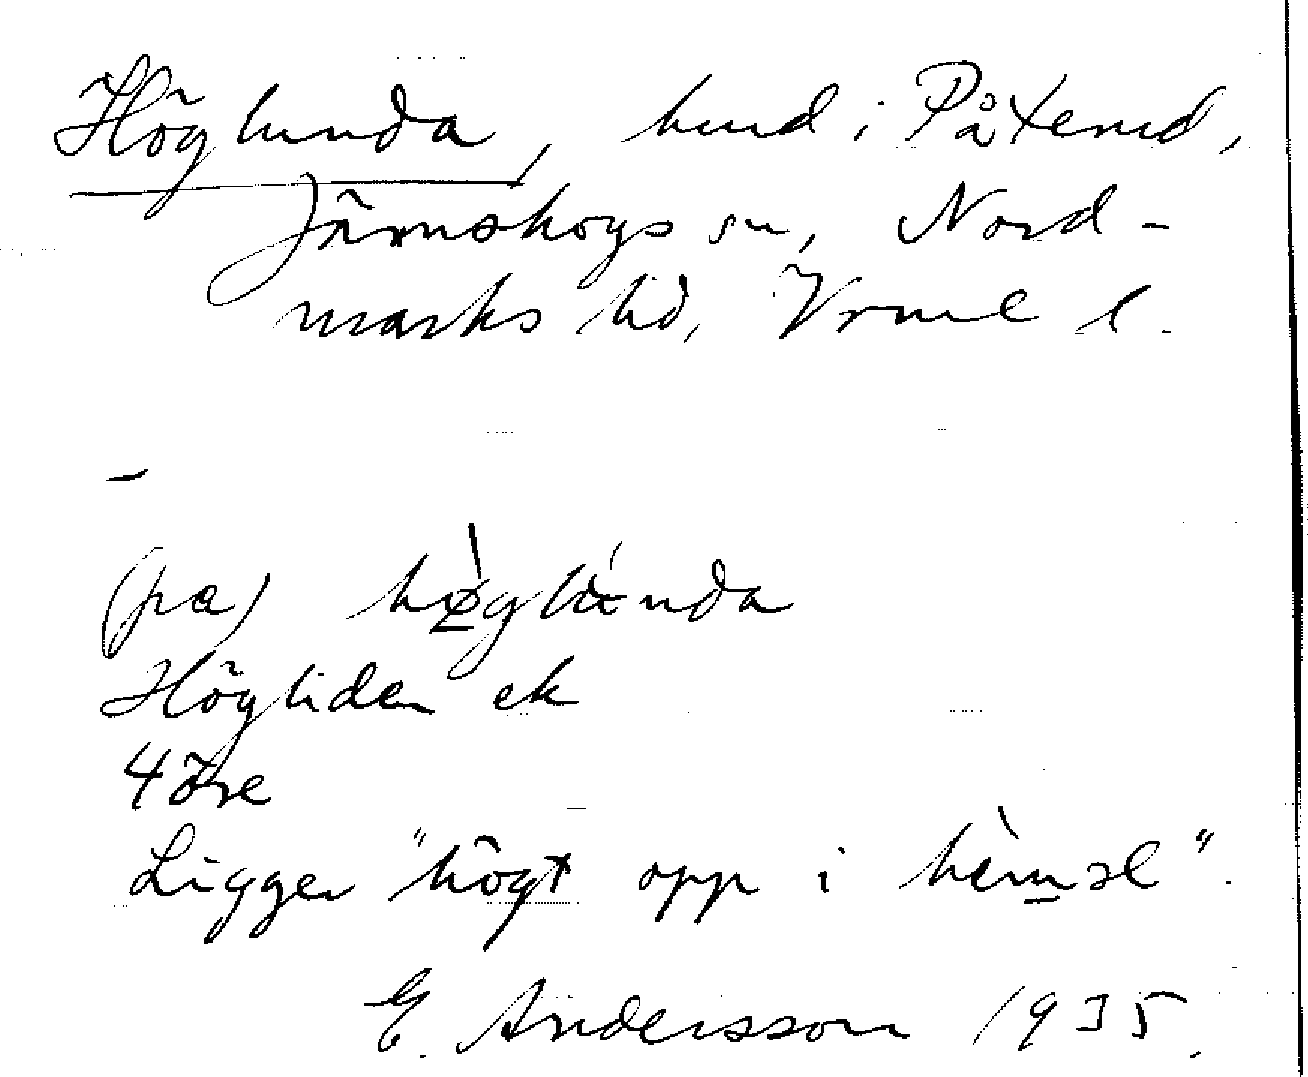 Höglunda, hmd i Påterud,
Järnskogs sn, Nord-
marks hd, Vrml l.
–
(pa) hø̀glúnda
Högliden ek
4 öre
Ligger "högt opp i hèməl".
E. Andersson 1935.